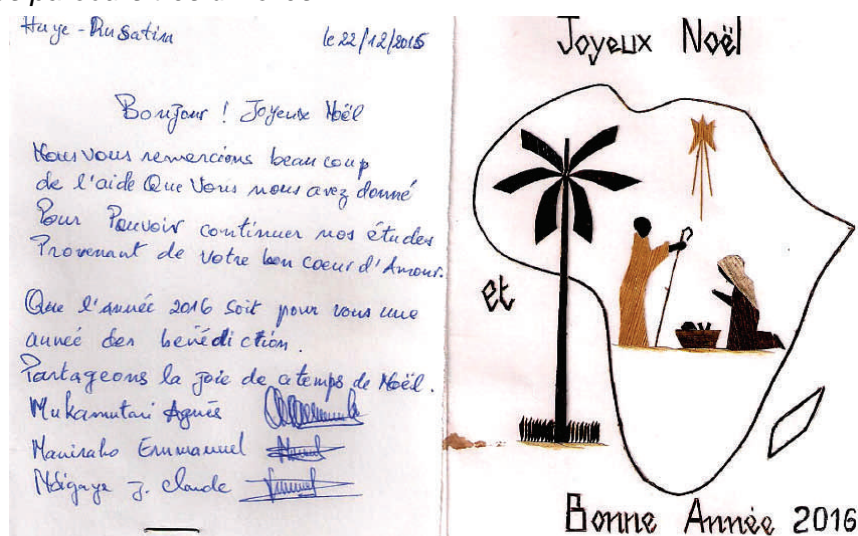 Huye - Rusatira
le 22/12/2015
Bonjour ! Joyeux Noël
Nous Vous remercions beaucoup
de l'aide Que Vous nous avez donné
Pour Pouvoir continuer nos études
Provenant de votre bon coeur d'Amour.
Que l'année 2016 soit pour vous une
année des bénédiction.
Partageons la joie de ce temps de Noël.
Mukamutari Agnès
Maniraho Emmanuel
Ndigaye J. Claude
Joyeux Noël
et
Bonne Année 2016